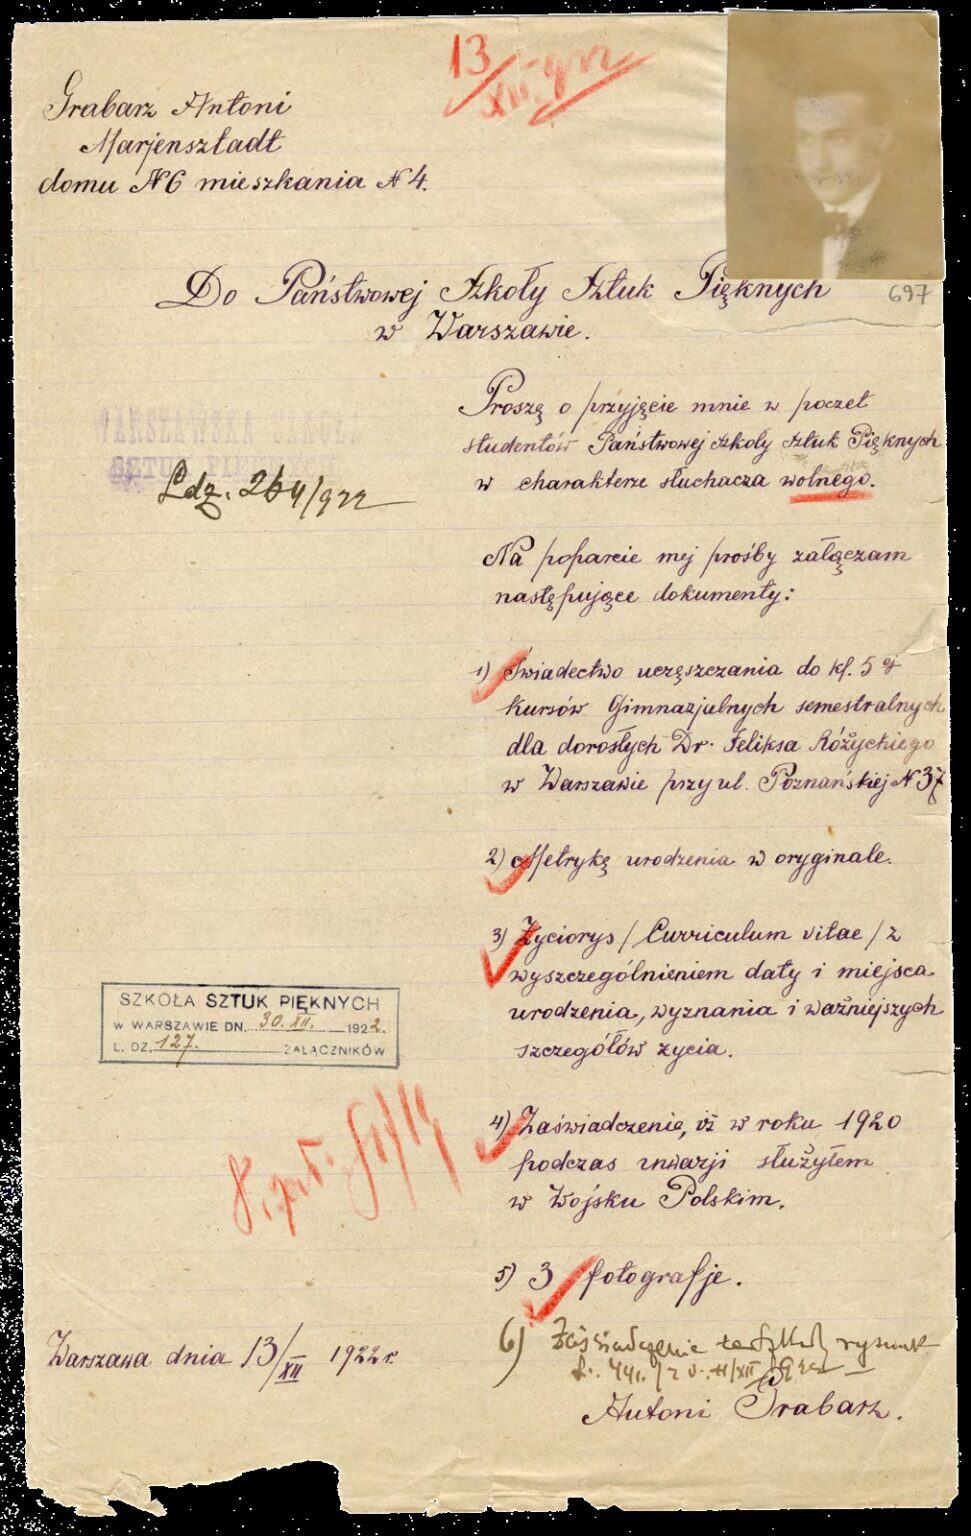 13/XII 922
Grabarz Antoni
Marjensztadt
domu N6 mieszkania N4.
697
Do Państwowej Szkoły Sztuk Pięknych
w Warszawie.
Proszę o przyjęcie mnie w poczet
studentów Państwowej szkoły sztuk Pięknych
w charakterze słuchacza wolnego.
WARSZAWSKA SZKOŁA
SZTUK PIĘKNYCH
Ldz. 264/922
Na poparcie mej prośby załączam
następujące dokumenty:
1) Świadectwo uczęszczania do kl. 5ej
kursów Gimnazjalnych semestralnych
dla dorosłych Dr. Feliksa Różyckiego
w Warszawie przy ul. Poznańskiej N 37
2) Metrykę urodzenia w oryginale.
3) Życiorys / Curriculum vitae / z
wyszczególnieniem daty i miejsca
urodzenia, wyznania i ważniejszych
szczegółów zycia.
SZKOŁA SZTUK PIĘKNYCH
W WARSZAWIE DN. 30.XII. 1922.
L. DZ. 127. ZAŁĄCZNIKÓW
4) Zaświadczenie, iż w roku 1920
podczas inwazji służyłem
w Wojsku Polskim.
5) 3 fotografje.
6) Zaświadczenie ze Szkoły rysunk
Warszawa dnia 13/XII 1922 r.
Antoni Grabarz.